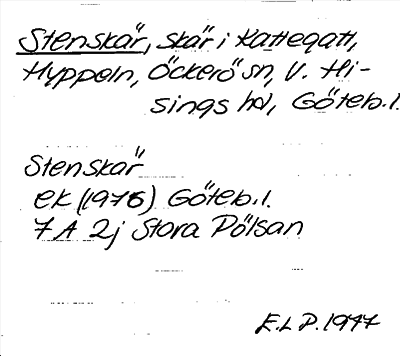 Stenskär, skär i Kattegatt,
Hyppeln, Öckerö sn, V. Hi-
sings hd, Göteb. l.
Stenskär
ek (1976) Göteb. l.
7 A 2j Stora Pölsan
E.L P. 1977